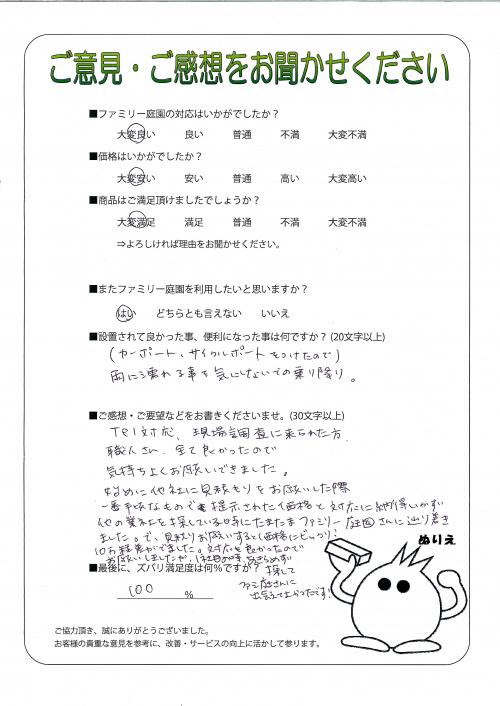 ご意見・ご感想をお聞かせください
■ファミリー庭園の対応はいかがでしたか？
大変良い 良い 普通 不満 大変不満
■価格はいかがでしたか？
大変安い 安い 普通 高い 大変高い
■商品はご満足頂けましたでしょうか？
大変満足 満足 普通 不満 大変不満
⇒よろしければ理由をお聞かせください。
■またファミリー庭園を利用したいと思いますか？
はい どちらとも言えない いいえ
■設置されて良かった事、便利になった事は何ですか？(20文字以上)
(カーポート、サイクルポートをつけたので)
雨に濡れる事を気にしないでの乗り降り。
■ご感想・ご要望などをお書きくださいませ。(30文字以上)
Tel対応、現場調査に来られた方、
職人さん、全て良かったので
気持ちよくお願いできました。
始めに他社に見積もりをお願いした際
一番手頃なもので提示された価格と対応に納得いかず
他の業者を探している時にたまたまファミリー庭園さんに辿り着き
ました。で、見積りお願いすると価格にビックリ!
10万程差がでました。対応も良かったので
お願いしましたが、
探して
ファミ庭さんに
出会えて良かったです!
■最後に、ズバリ満足度は何%ですか？
100 %
ぬりえ
ご協力頂き、誠にありがとうございました。
お客様の貴重な意見を参考に、改善・サービスの向上に活かして参ります。